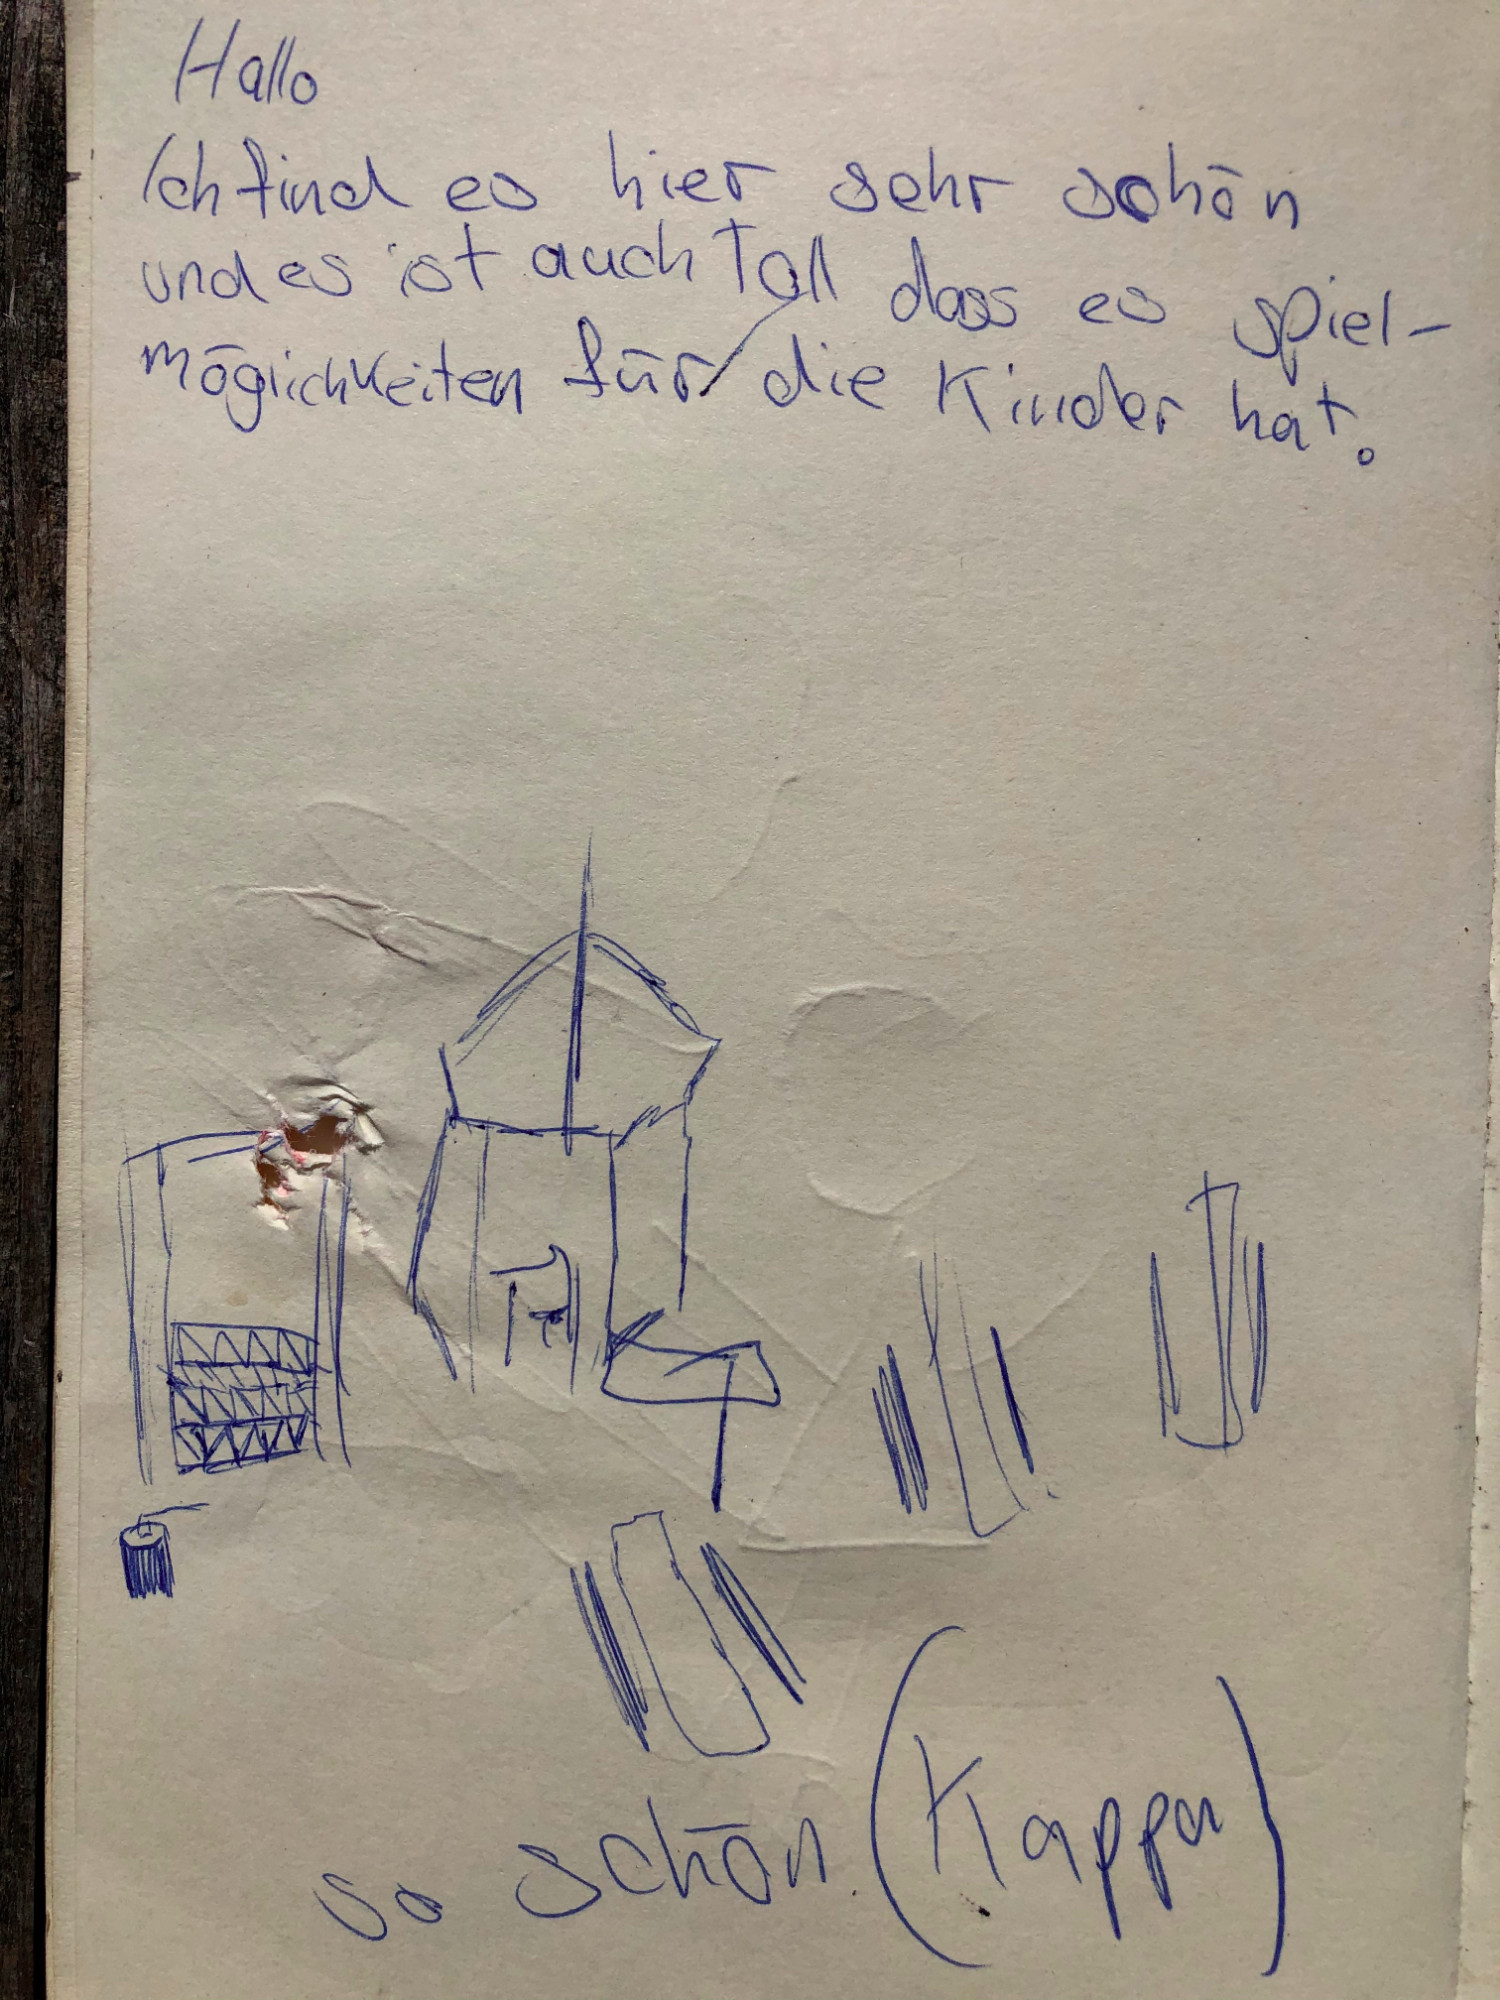 Hallo
Ich find es hier sehr schön
und es ist auch Toll dass es spiel-
möglichkeiten für die Kinder hat.
so schön (Kappa)